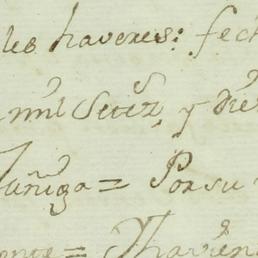 les haveres: fech
mil Setez, y die
Zuñiga = Por su
= Thavien